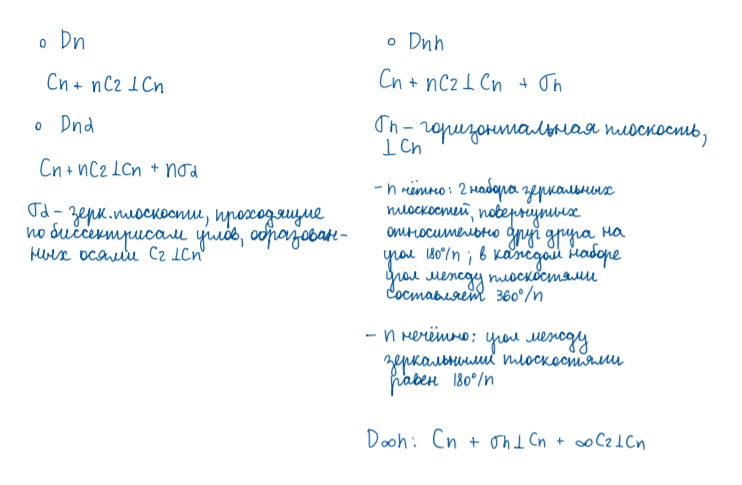 o Dn
Cn + nC2 ⊥ Cn
o Dnd
Cn + nC2 ⊥ Cn + nσd
σd – зерк. плоскости, проходящие
по биссектрисам углов, образован-
ных осями C2 ⊥ Cn
o Dnh
Cn + nC2 ⊥ Cn + σh
σh – горизонтальная плоскость,
⊥ Cn
– n чётно: 2 набора зеркальных
плоскостей, повернутых
относительно друг друга на
угол 180°/n ; в каждом наборе
угол между плоскостями
составляет 360°/n
– n нечётно: угол между
зеркальными плоскостями
равен 180°/n
D∞h: Cn + σh ⊥ Cn + ∞C2 ⊥ Cn